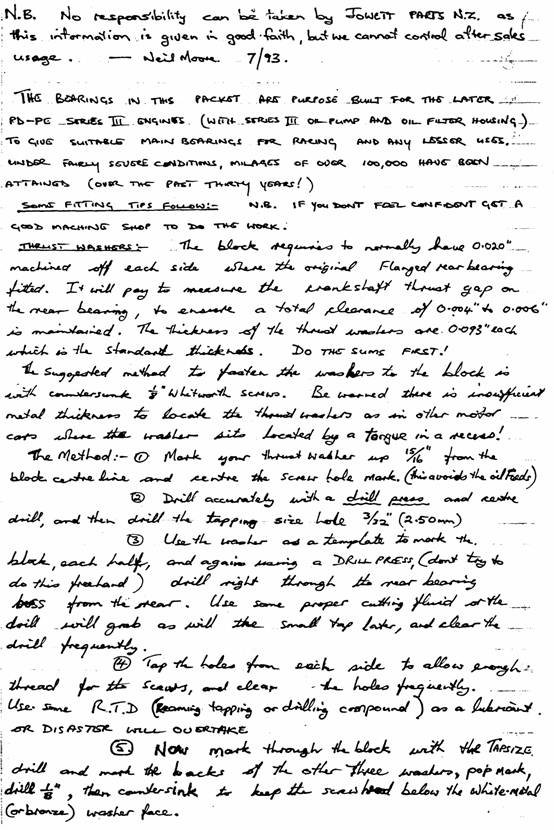 N.B. No responsibility can be taken by JOWETT PARTS N.Z. as
this information is given in good faith, but we cannot control after sales
usage. — Neil Moore 7/93.
THE BEARINGS IN THIS PACKET ARE PURPOSE BUILT FOR THE LATER
PD-PE SERIES III ENGINES (WITH SERIES III OIL PUMP AND OIL FILTER HOUSING)
TO GIVE SUITABLE MAIN BEARINGS FOR RACING AND ANY LESSER USES.
UNDER FAIRLY SEVERE CONDITIONS, MILAGES OF OVER 100,000 HAVE BEEN
ATTAINED (OVER THE PAST THIRTY YEARS!)
SOME FITTING TIPS FOLLOW:- N.B. IF YOU DONT FEEL CONFIDENT GET A
GOOD MACHINE SHOP TO DO THE WORK.
THRUST WASHERS:- The block requires to normally have 0.020"
machined off each side where the original Flanged rear bearing
fitted. It will pay to measure the crankshaft thrust gap on
the rear bearing, to ensure a total clearance of 0.004" to 0.006"
is maintained. The thickness of the thrust washers are 0.093" each
which is the standard thickness. DO THE SUMS FIRST!
The suggested method to fasten the washers to the block is
with countersunk 1/8" Whitworth screws. Be warned there is insufficient
metal thickness to locate the thrust washers as in other motor
cars where the washer sits located by a torgue in a recess!
The Method:- ① Mark your thrust washer up 15/16" from the
block centre line and centre the screw hole mark. (this avoids the oil feeds)
② Drill accurately with a drill press and centre
drill, and then drill the tapping size hole 3/32" (2.50mm)
③ Use the washer as a template to mark the
block, each half, and again using a DRILL PRESS, (dont try to
do this freehand) drill right through the rear bearing
boss from the rear. Use some proper cutting fluid or the
drill will grab as will the small tap later, and clear the
drill frequently.
④ Tap the holes from each side to allow enough
thread for the screws, and clear the holes frequently.
Use some R.T.D (Reaming tapping or drilling compound) as a lubricant
OR DISASTER WILL OVERTAKE
⑤ Now mark through the block with THE TAPSIZE
drill and mark the backs of the other three washers, pop mark,
drill 1/8", then countersink to keep the screwhead below the white-metal
(or bronze) washer face.